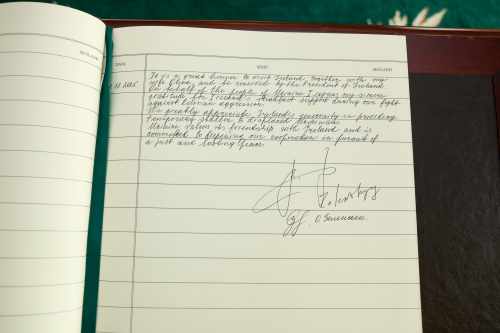 DATE VISIT
12.2025
It is a great honour to visit Ireland together with my
wife Olena, and be received by the President of Ireland
On behalf of the people of Ukraine I express my sincere
gratitude for Ireland's steadfast support during our fight
against Russian aggression.
We greatly appreciate Ireland's generosity in providing
temporary shelter to displaced Ukrainians.
Ukraine values its friendship with Ireland and is
committed to deepening our cooperation in pursuit of
a just and lasting peace.